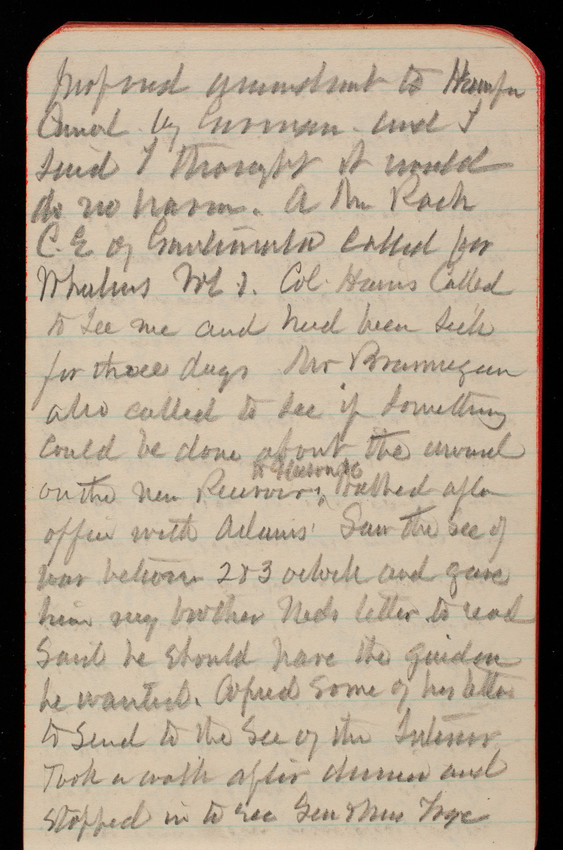 proposed amendment to
Canal by Gorman. and I
said I thought it would
do no harm. A Mr Rock
C. E. of called for
Wheelers Col. Hains Called
to see me and had been sick
for three days Mr Brannegan
also called to see if something
could be done about the award
on the new Reservoir, walked after
office with Adams Saw the Sec of
war between 2 & 3 oclock and gave
him my brother Neds letter to read
Said he should have the guidon
he wanted. Copied some of his letter
to send to the Sec of the Interior
Took a walk after dinner and
stopped in to see Gen & Mrs